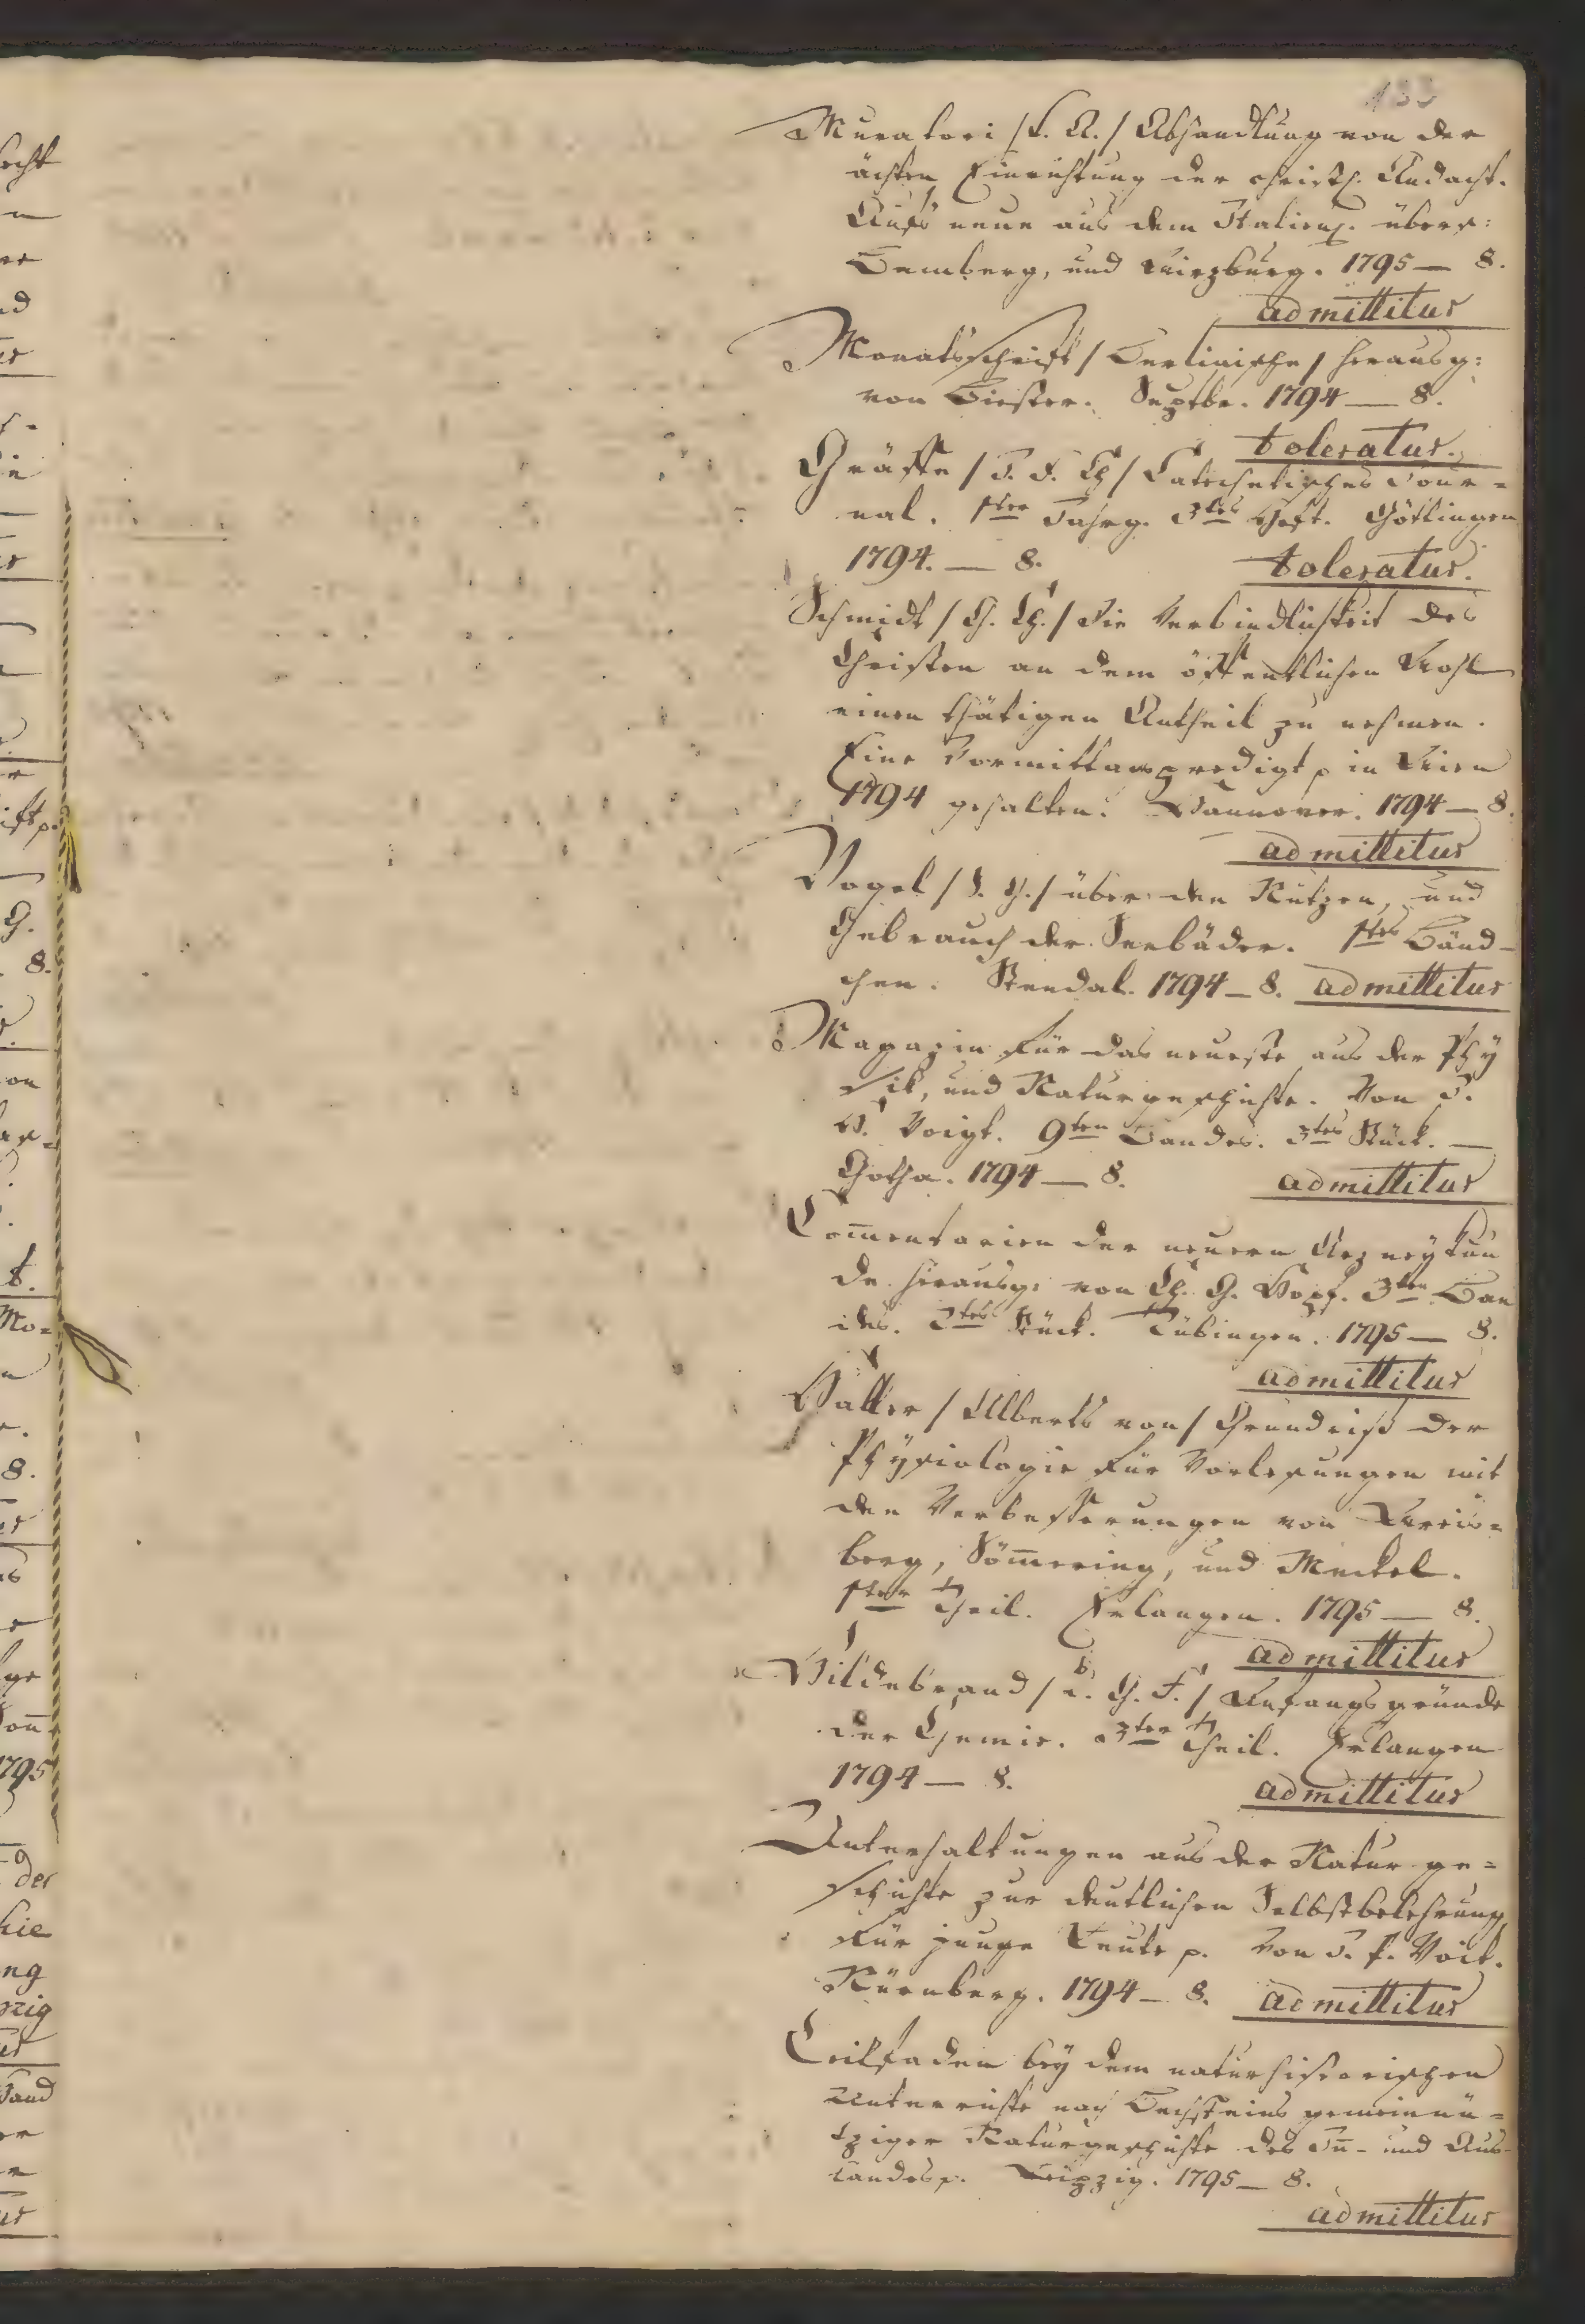 133
Muratori /L. A./ Abhandlung von der
ächten Einrichtung der christl. Andacht.
Aufs neue aus dem Italien. übers:
Bamberg, und Wirzburg. 1795 — 8.
admittitur
Monatsschrift / Berlinische / herausg:
von Biester. Septbr. 1794 — 8.
toleratur.
Gräffe / J. F. Ch / Catechetisches Jour=
nal. 1ter Jahrg. 3tes Heft. Göttingen
1794. — 8. toleratur.
Schmidt / C. Ch. / Die Verbindlichkeit des
Christen an dem öffentlichen Wohl
einen thätigen Antheil zu nehmen.
Eine Vormittagspredigt p in Wien
1794 gehalten. Hannover. 1794 — 8.
admittitur
Vogel / S. G. / über den Nutzen, und
Gebrauch der Seebäder. 1tes Bänd-
chen. Stendal. 1794 — 8. admittitur
Magazin für das neueste aus der Phy
sik, und Naturgeschichte. Von J.
H. Voigt. 9ten Bandes. 3tes Stück. —
Gotha. 1794 — 8. admittitur
Com̅entarien der neuern Arzneykun
de herausg: von Ch. G. Hopf. 3ten Ban
des. 2tes Stück. Tübingen. 1795 — 8.
admittitur
Haller / Alberts von / Grundriß der
Physiologie für Vorlesungen mit
den Verbesserungen von Wris=
berg, Söm̅ering, und Meckel.
1ter Theil. Erlangen. 1795 — 8.
admittitur
Hildebrand / G. F. / Anfangsgründe
der Chemie. 3ter Theil. Erlangen
1794 — 8. admittitur
Unterhaltungen aus der Naturge=
schichte zur deutlichen Selbstbelehrung
für junge Leute p. von J. P. Voit.
Nürnberg. 1794 — 8. admittitur
Leitfaden bey dem naturhistorischen
Unterrichte nach Bechsteins gemeinnü=
tziger Naturgeschichte des In̅- und Aus-
landes p. Leipzig. 1795 — 8.
admittitur